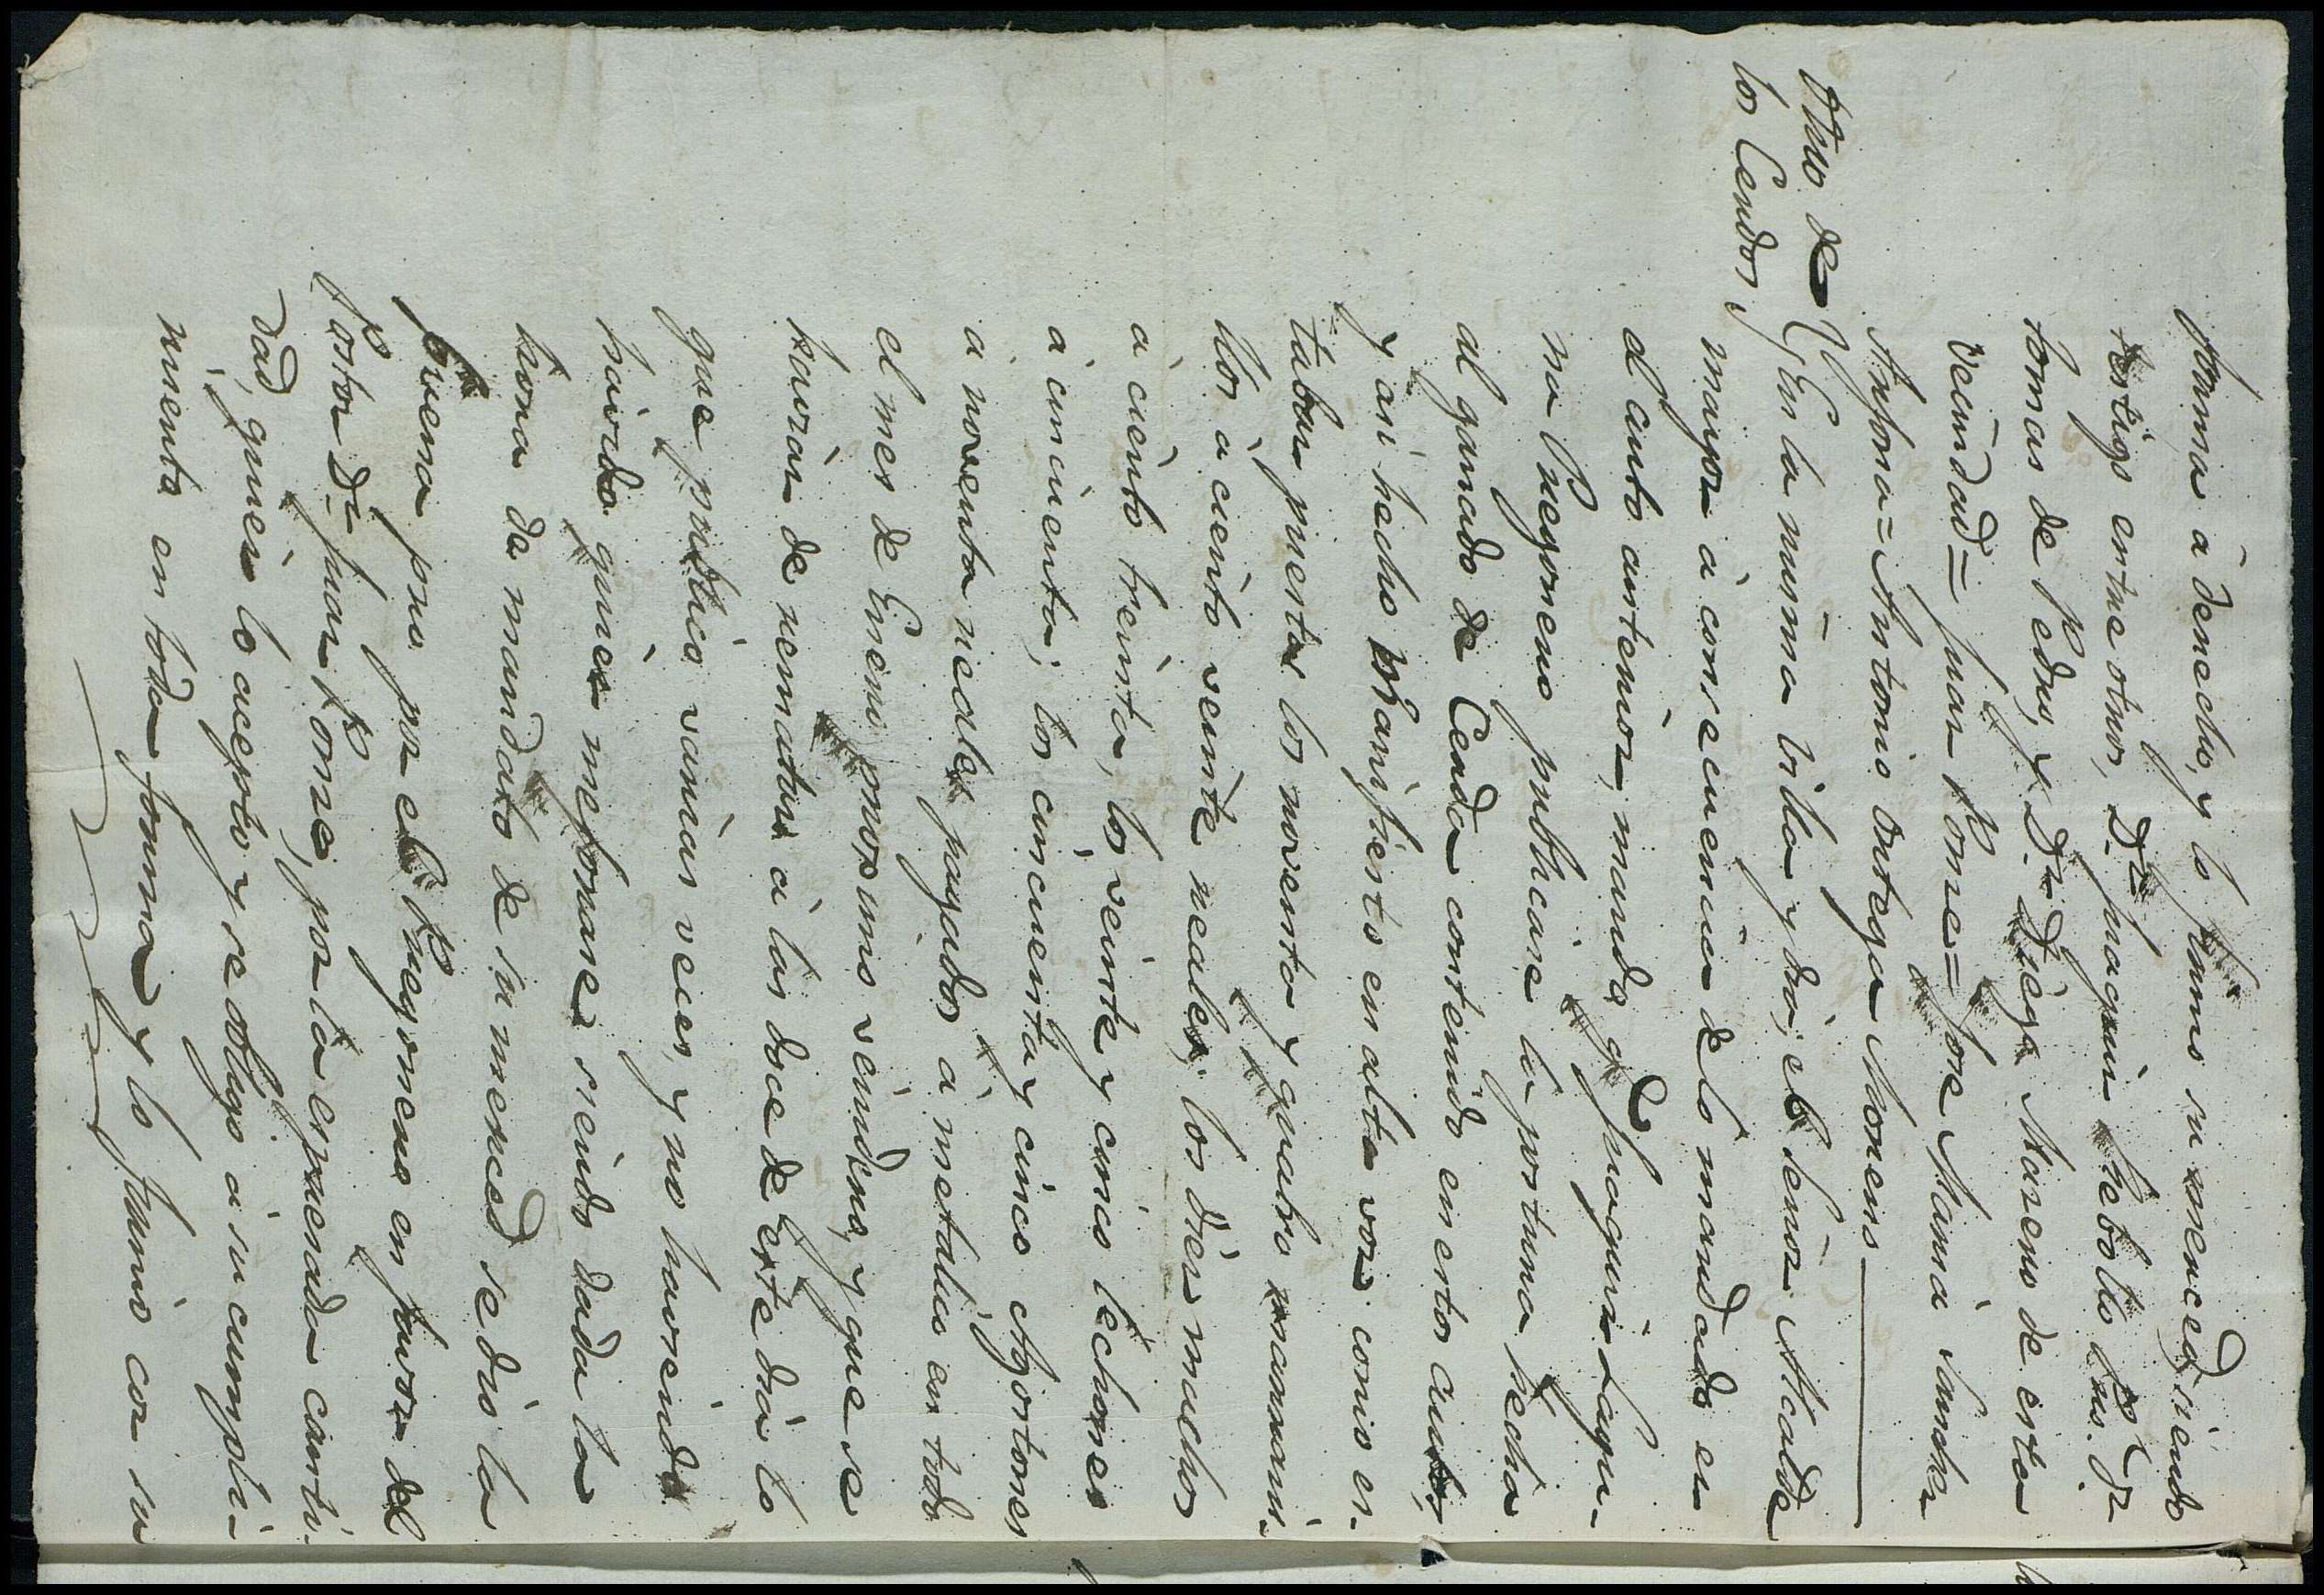 forma â derecho, y lo firmo su merced siendo
testigo entre otros, Dn. Juaquin Rebollo Pro. Dn
tomas de Pedro, y Dn. Diego Mareno de esta
vecindad= Juan Ponze= Jose Maria Sanchez
Arjona= Antonio ortega Moreno
Otrro de
los Cerdos,
En la misma villa y dia, el señor Alcalde
mayor à consecuencia de lo mandado en
el auto anterior, mandó qe Juaquin Lagu-
na Pregonero publicase la postura hecha
al ganado de Cerda contenido en estos autos,
y asi hecho manifiesto en alta voz como es-
taban puestos los noventa y quatro marrani-
llos à ciento veinte reales; los diez machos
à ciento treinta, los veinte y cinco lechones
à cincuenta; los cincuenta y cinco Agostones
à noventa reales pagados à metalico en todo
el mes de Enero proximo venidero, y que se
havian de rematar à las doce de este dia lo
que publicò varias veces, y no haviendo
havido quièn mejorase siendo dada la
hora de mandato de su merced se diò la
buena pro por el Pregonero en favor del
Postor Dn. Juan Ponze, por la espresada canti-
dad, quièn lo aceptò y se obligò à su cumpli-
miento en toda forma y lo firmò con su